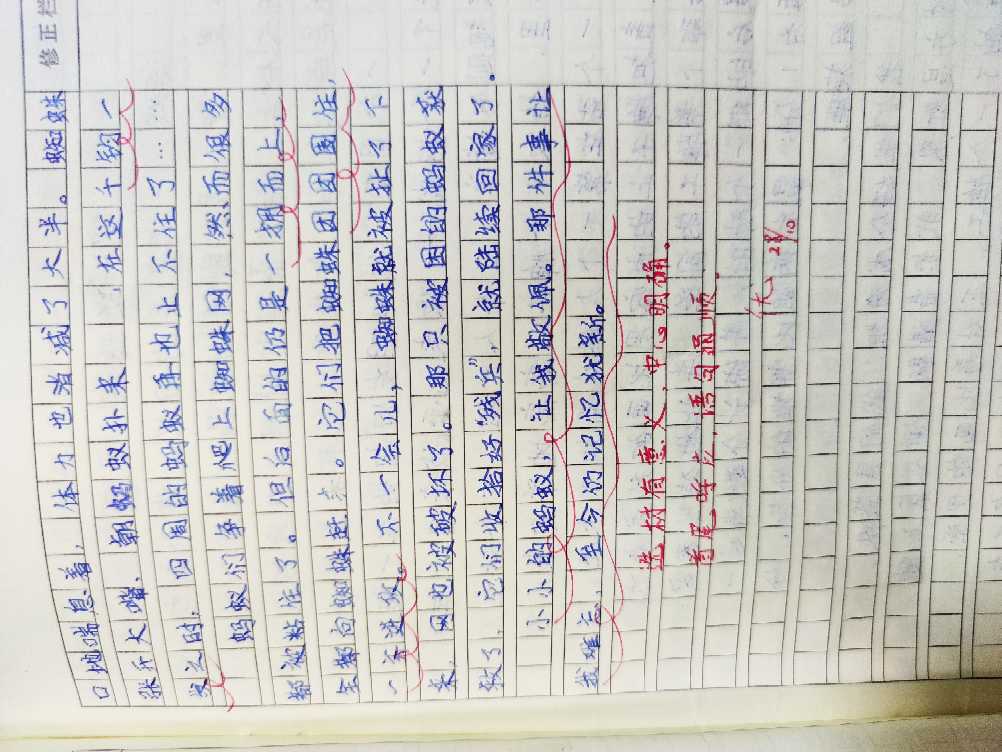 修正栏
口地喘息着,体力也消减了大半。蜘蛛
张开大嘴,朝蚂蚁扑来,在这千钧一
发之时,四周的蚂蚁再也止不住了……
蚂蚁们争着爬上蜘蛛网,然而很多
都被粘住了。但后面的仍是一拥而上,
全都向蜘蛛赶来。它们把蜘蛛团团围住,
一并进攻。不一会儿,蜘蛛就被扯了下
来,网也被破坏了。那只被困的蚂蚁获
救了,它们收拾好“残兵”,就陆续回家了。
小小的蚂蚁,让我敬佩。那件事让
我难忘,至今仍记忆犹新。
选材有意义,中心明确。
首尾呼应,语句通顺。
优 28/10